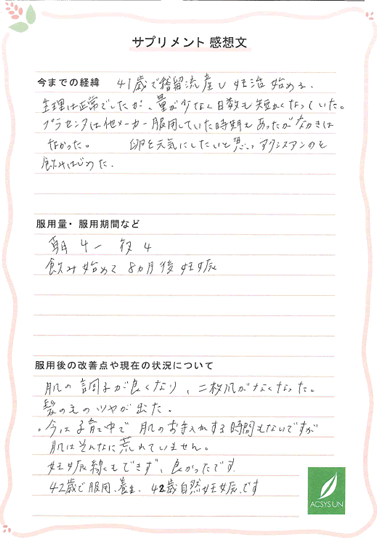 サプリメント 感想文
今までの経緯 41歳で稽留流産し妊活始める。
生理は正常でしたが、量が少なく日数も短かくなっていた。
プラセンタは他メーカー服用していた時期もあったが なかった。
卵を元気にしたいと思い アクシスアンのを
飲みはじめた。
服用量・服用期間など
朝4ー夜4
飲み始めて8カ月後妊娠
服用後の改善点や現在の状況について
肌の調子が良くなり、二枚爪がなくなった。
髪の毛のツヤが出た。
・今は子育て中で肌のお手入れする時間もないですが
肌はそんなに荒れていません。
妊娠線もできず、良かったです
42歳で服用、 42歳自然妊娠です
ACSYSUN